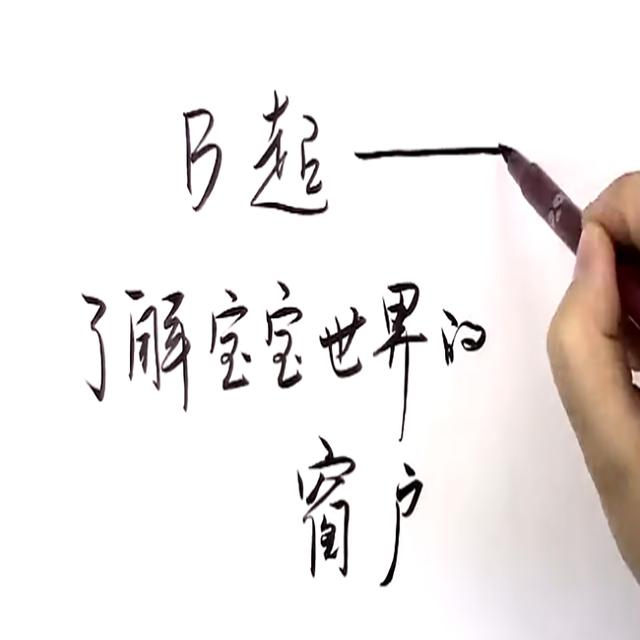 B超——
了解宝宝世界的
窗户